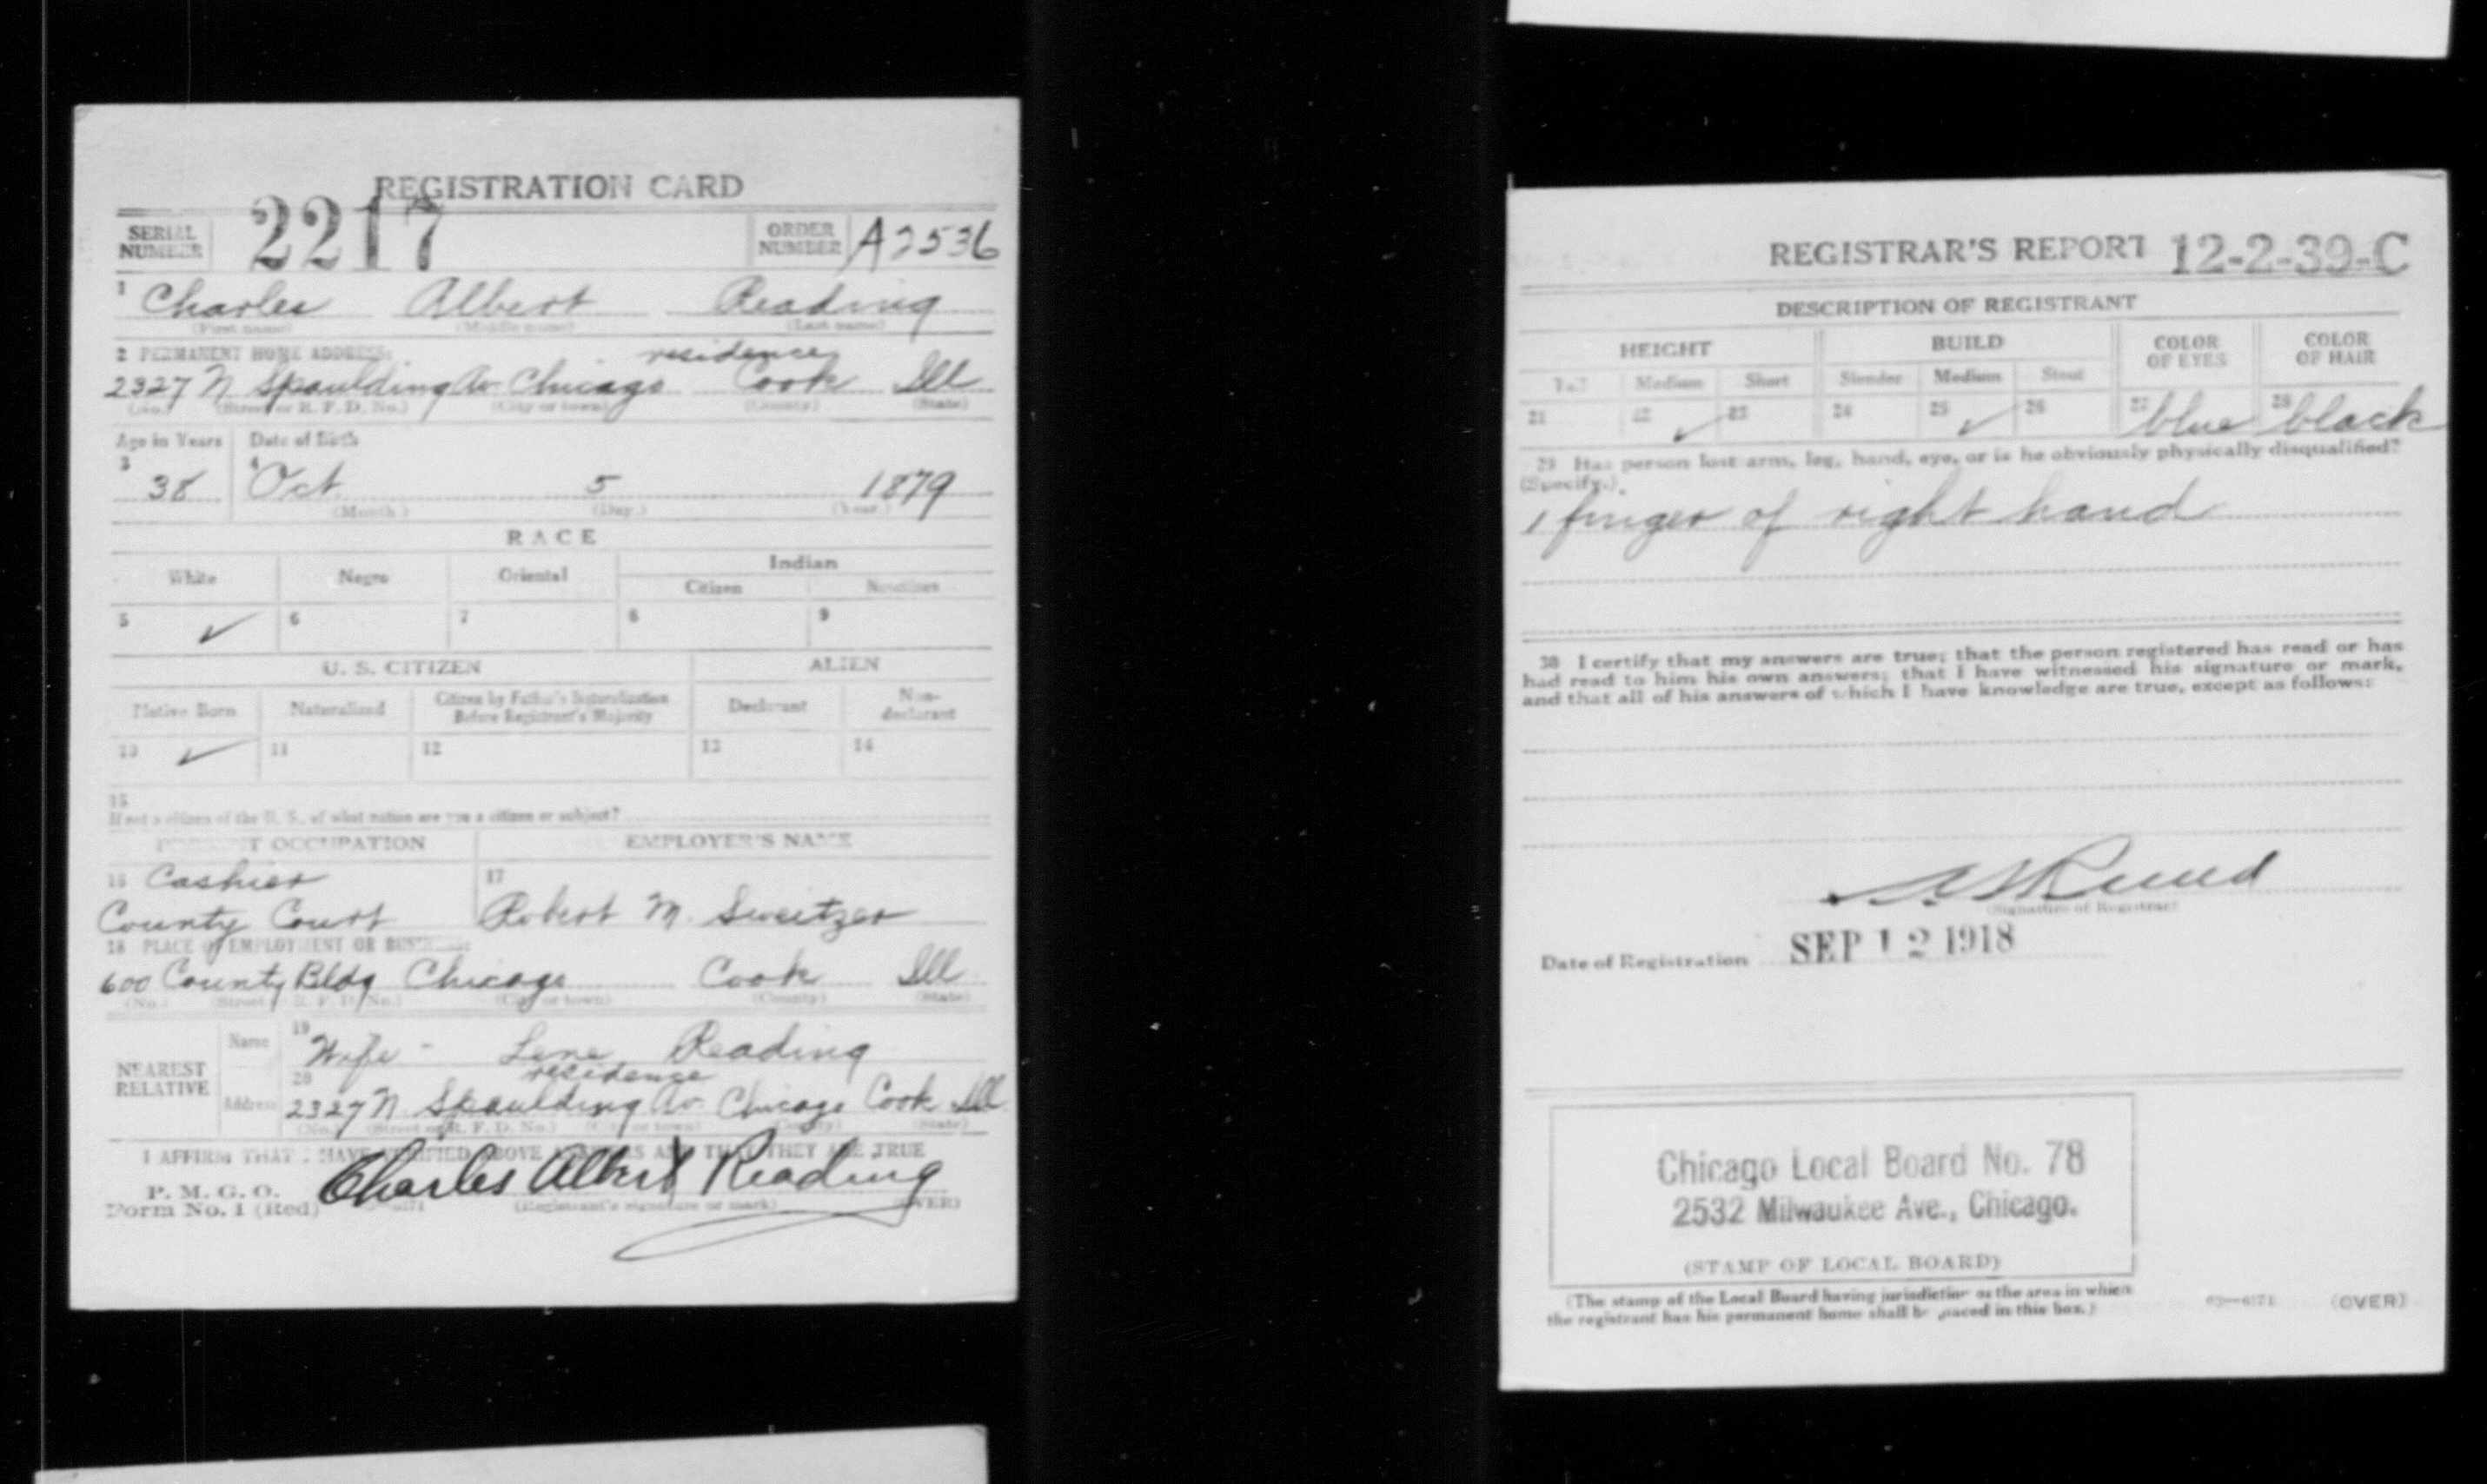 REGISTRATION CARD
SERIAL NUMBER 2217 ORDER NUMBER A2536
1 Charles Albert Reading
(First name) (Middle name) (Last name)
2 PERMANENT HOME ADDRESS: residence
2327 N Spaulding Av Chicago Cook Ill
(No.) (Street or R. F. D. No.) (City or town) (County) (State)
Age in Years Date of Birth
3 38 4 Oct 5 1879
(Month.) (Day.) (Year.)
RACE
White Negro Oriental Indian
Citizen Noncitizen
5 ✓ 6 7 8 9
U. S. CITIZEN ALIEN
Native Born Naturalized Citizen by Father's Naturalization Before Registrant's Majority Declarant Non-declarant
10 ✓ 11 12 13 14
15
If not a citizen of the U. S., of what nation are you a citizen or subject?
PRESENT OCCUPATION EMPLOYER'S NAME
16 Cashier 17
County Court Robert M. Sweitzer
18 PLACE OF EMPLOYMENT OR BUSINESS:
600 County Bldg Chicago Cook Ill
(No.) (Street or R. F. D. No.) (City or town) (County) (State)
NEAREST RELATIVE
Name 19 Wife - Lene Reading
20 residence
Address 2327 N. Spaulding Av. Chicago Cook Ill
(No.) (Street or R. F. D. No.) (City or town) (County) (State)
I AFFIRM THAT I HAVE VERIFIED ABOVE ANSWERS AND THAT THEY ARE TRUE
P. M. G. O.
Form No. 1 (Red) Charles Albert Reading
(Registrant's signature or mark) (OVER)
REGISTRAR'S REPORT 12-2-39-C
DESCRIPTION OF REGISTRANT
HEIGHT BUILD COLOR OF EYES COLOR OF HAIR
Tall Medium Short Slender Medium Stout
21 22 ✓ 23 24 25 ✓ 26 27 blue 28 black
29 Has person lost arm, leg, hand, eye, or is he obviously physically disqualified?
(Specify.)
1 finger of right hand
30 I certify that my answers are true; that the person registered has read or has
had read to him his own answers; that I have witnessed his signature or mark,
and that all of his answers of which I have knowledge are true, except as follows:
(Signature of Registrar)
Date of Registration SEP 12 1918
Chicago Local Board No. 78
2532 Milwaukee Ave., Chicago.
(STAMP OF LOCAL BOARD)
(The stamp of the Local Board having jurisdiction of the area in which
the registrant has his permanent home shall be placed in this box.)
03—6171 (OVER)